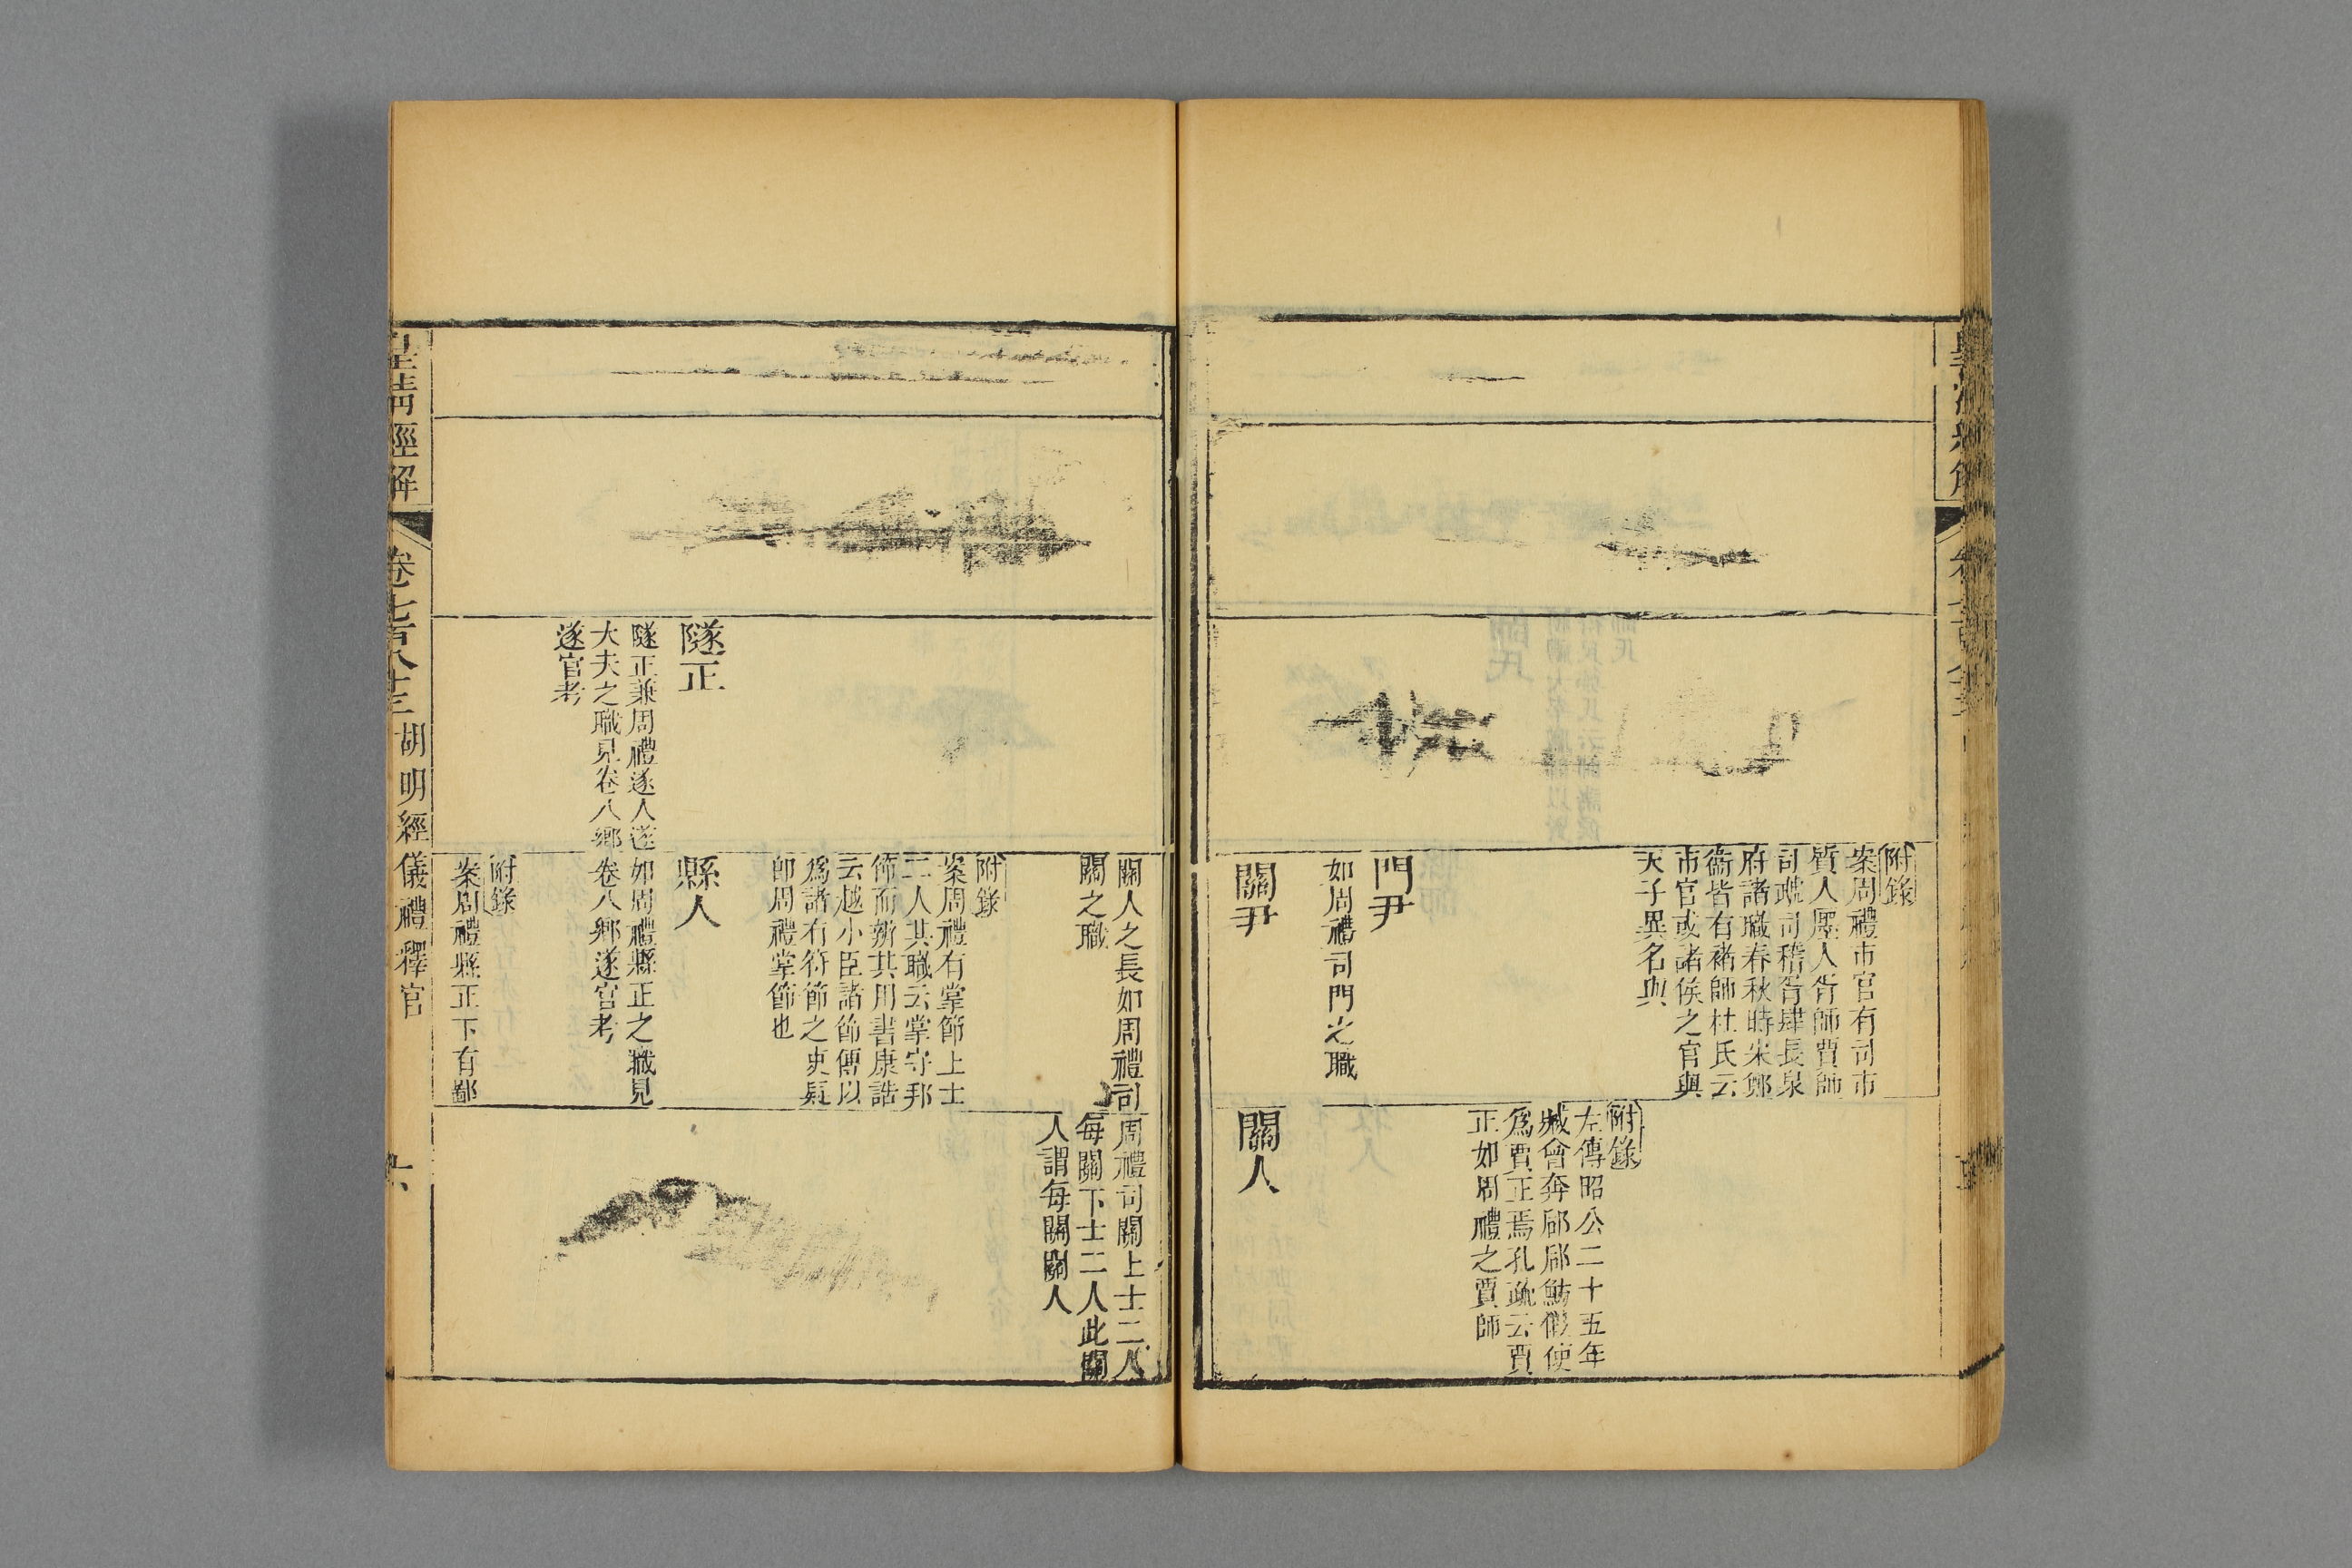 附錄
案周禮市官有司市
質人廛人胥師賈師
司虣司稽胥肆長泉
府諸職春秋時宋鄭
衞皆有褚師杜氏云
市官或諸侯之官與
天子異名與
附錄
左傳昭公二十五年
臧會奔郈郈魴假使
為賈正焉孔疏云賈
正如周禮之賈師
門尹
如周禮司門之職
關尹
關人
關人之長如周禮司
關之職
周禮司關上士二人
每關下士二人此關
人謂每關關人
附錄
案周禮有掌節上士
二人其職云掌守邦
節而辨其用書康誥
云越小臣諸節傳以
為諸有符節之吏疑
即周禮掌節也
隧正
隧正兼周禮遂人遂
大夫之職見卷八鄉
遂官考
縣人
如周禮縣正之職見
卷八鄉遂官考
附錄
案周禮縣正下有鄙
皇清經解
卷七百八十三
胡明經儀禮釋官